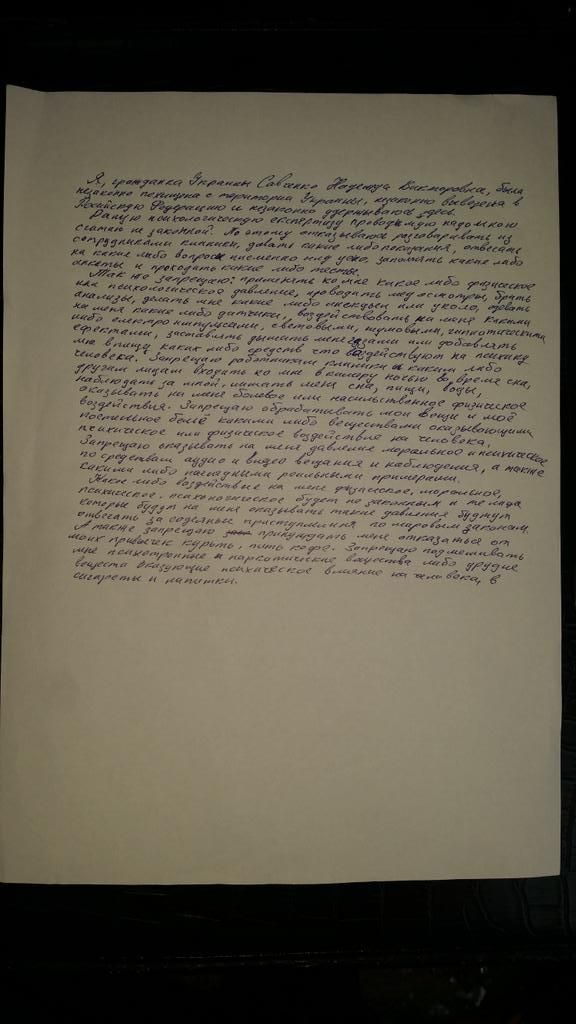 Я, гражданка Украины Савченко Надежда Викторовна, была
незаконно похищена с територии Украины, незаконно вывезена в
Российскую Федерацию и незаконно удерживаюсь здесь.
Раную психологическую експертизу проводимую надомною
считаю не законной. По этому отказываюсь разговаривать из
сотрудниками клиники, давать какие либо показания, отвечать
на какие либо вопросы письменно или устно, заполнять какие либо
анкеты и проходить какие либо тесты.
Так же запрещаю: применять комне какое либо физическое
или психологическое давление, проводить мед осмотры, брать
анализы, делать мне какие либо инекции или укол,
на меня какие либо датчики, воздействовать на меня какими
либо електроимпульсами, световыми, шумовыми, гипнотическими
ефектами, заставлять дышать мене газами или добавлять
мне в пищу каких либо средств что воздействуют на психику
человека. Запрещаю работникам клиники и каким либо
другим лицам входить ко мне в камеру ночью во время сна,
наблюдать за мной, лишать меня сна, пищи, воды,
оказывать на меня болевое или насильственное физическое
воздействия. Запрещаю обрабатывать мои вещи и моё
постельное бельё какими либо веществами оказывающими
психическое или физическое воздействия на человека.
Запрещаю оказывать на меня давление моральное и психическое
по средствам аудио и видео вещания и наблюдения, а также
какими либо наглядными реальными примерами.
Какое либо воздействие на мене физическое, моральное,
психическое, психологическое будет не законным и те лица
которые будут на меня оказывать такие давления будут
отвечать за содеяные приступления по мировым законам.
А также запрещаю принуждать меня отказаться от
моих привычек курить, пить кофе. Запрещаю подмешивать
мне психотропные и наркотические вещества либо другие
веществ оказующие психическое влияние на человека, в
сигареты и напитки.